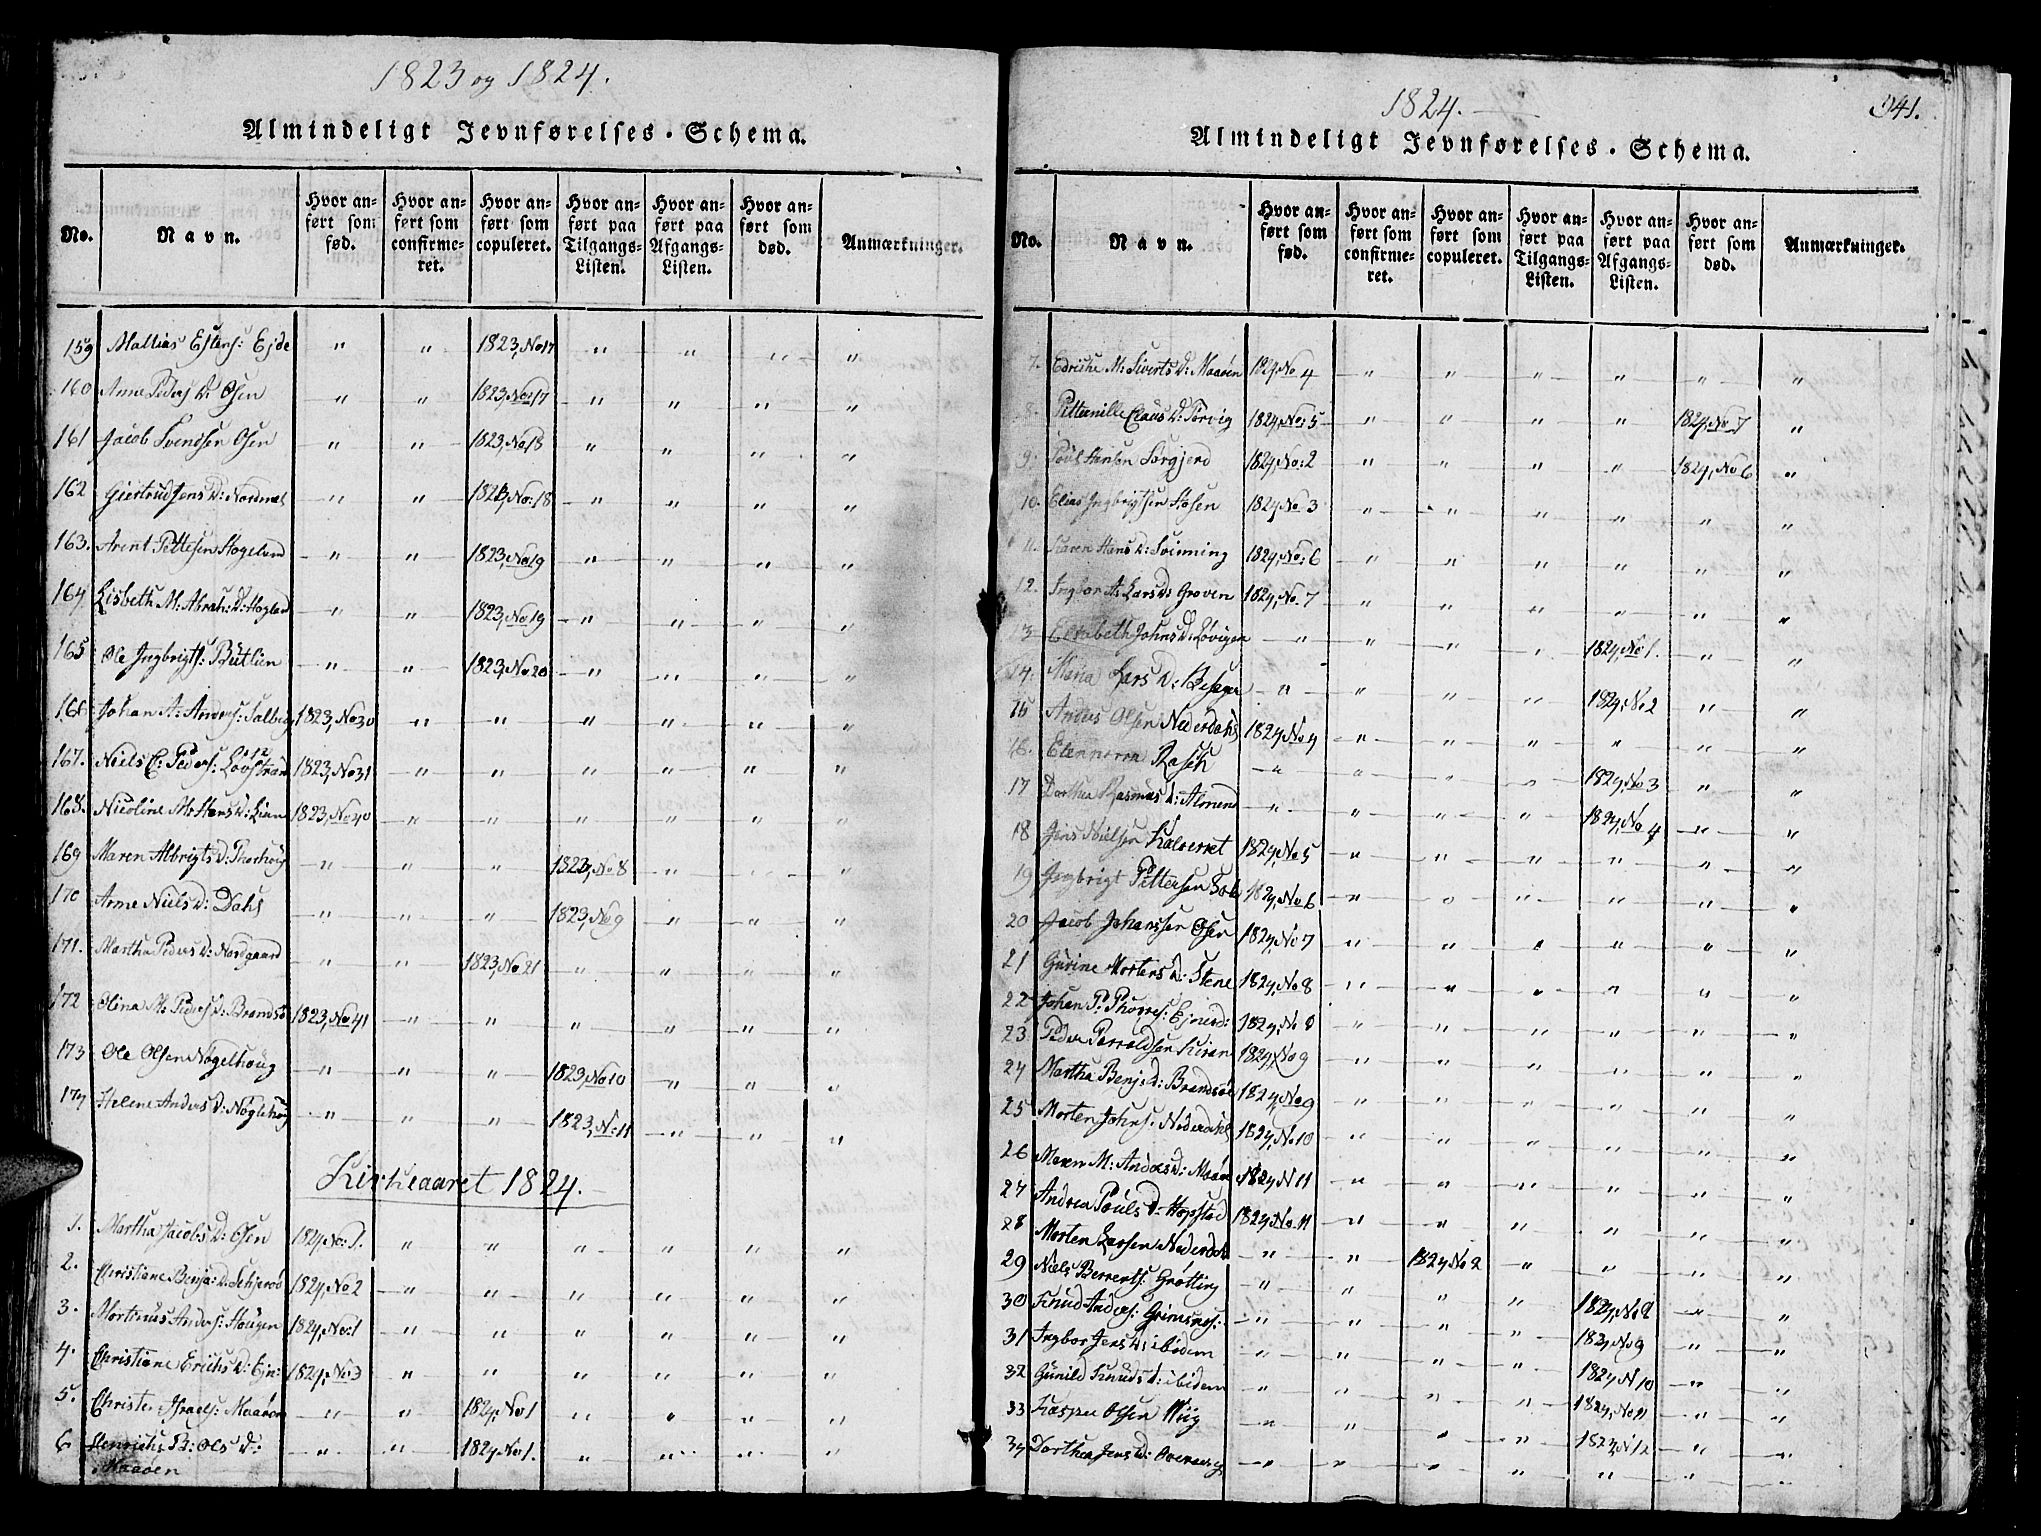 1823 og 1824.
Almindeligt Jevnførelses-Schema.
No. Navn. Hvor anført som fød. Hvor anført som confirmeret. Hvor anført som copuleret. Hvor anført paa Tilgangs-Listen. Hvor anført paa Afgangs-Listen. Hvor anført som død. Anmærkninger.
159 Mathias Estens: Ejde " " 1823, No 17 " " " "
160 Anne Peders D: Osen " " 1823, No 17 " " " "
161 Jacob Svendsen Osen " " 1823, No 18 " " " "
162 Giertrud Jens D: Nordmel " " 1823, No: 18 " " " "
163. Arent Pettesen Hogeland " " 1823, No 19 " " " "
164 Lisbeth M: Abrah: D: Hogland " " 1823, No 19 " " " "
165 Ole Ingbrigts: Butlien " " 1823, No 20 " " " "
166 Johan A: Anders: Salberg 1823, No 30 " " " " " "
167. Niels E: Peders: Løvstran 1823, No 31 " " " " " "
168. Nicoline M: Hans D: Lien 1823, No 40 " " " " " "
169 Maren Albrigts D: Thorhoug " " " 1823, No 8 " " "
170 Anne Niels D: Dahl " " " 1823, No 9 " " "
171. Martha Peders D: Nordgaard " " 1823, No 21 " " " "
172 Olina M: Peders D: Brandsø 1823, No 41 " " " " " "
173 Ole Olsen Nøgelhoug " " " 1823, No 10 " " "
174 Helene Anders D: Nøglehoug " " " 1823, No: 11 " " "
Kirkeaaret 1824.
1. Martha Jacobs D: Osen 1824 No: 1. " " " " " "
2. Christiane Benja: D: Schjervø 1824, No 2 " " " " " "
3. Mortinus Anders: Hougen 1824, No: 1 " " " " " "
4. Christiane Erichs D: Ejn: 1824, No 3 " " " " " "
5. Christe: Israels: Maaøen " " 1824, No 1 " " " "
6 Henriche B: Ols D: " " 1824 No 1. " " " "
Maaøen
1824.
341.
Almindeligt Jevnførelses-Schema.
No. Navn. Hvor anført som fød. Hvor anført som confirmeret. Hvor anført som copuleret. Hvor anført paa Tilgangs-Listen. Hvor anført paa Afgangs-Listen. Hvor anført som død. Anmærkninger.
7. M: Siverts D: Maaøen 1824 No 4 " " " " " "
8. Petternille Claus D: Torvig 1824, No: 5 " " " " 1824, No 7 "
9. Poul Hansen Sørgjerd 1824, No: 2 " " " " 1824, No 6 "
10. Elias Ingbrigtsen Hosen 1824 No 3 " " " " " "
11. Karen Hans D: Svinning 1824, No: 6 " " " " " "
12. Ingbor A: Lars D: Groven 1824, No. 7 " " " " " "
13 Elisabeth Johns D: Løvigen " " " " 1824, No 1. " "
14. Maria Lars D: Besager " " " " 1824, No 2 " "
15 Anders Olsen Nederdahl 1824 No 4 " " " " " "
16. Rasch " " " " 1824, No 3 " "
17 Dorthea Rasmus D: Almend " " " " 1824, No 4 " "
18 Jens Nielsen 1824, No 5 " " " " " "
19 Ingbrigt Pettersen 1824, No 6 " " " " " "
20 Jacob Johanssen Osen 1824, No 7 " " " " " "
21 Gurine Mortens D: Stene 1824, No 8 " " " " " "
22 Johan P: Thorres: Ejnesd: 1824, No 8 " " " " " "
23 Peder Parraldsen Kiran 1824, No 9 " " " " " "
24 Martha Benj: D: Brandsøe 1824, No 9 " " " " " "
25 Morten Johns: Nederdahl 1824, No 10 " " " " " "
26 Maren M: Anders D: Maaøe 1824 N 11 " " " " " "
27 Andrea Pouls D: Hopstad 1824, No. 11 " " " " " "
28 Morten Larsen Nederdahl " " 1824 No 2 " " " "
29 Niels Berrents: Grøtting " " " " 1824, No 8 " "
30 Knud Anders: Grimsnes: " " " " 1824, No 9 " "
31 Ingbor Jens D: ibidem " " " " 1824 N 10 " "
32 Gunild Knuds D: ibidem " " " " 1824, No 11 " "
33 Kasper Olsen Wiig " " " " 1824, N 12 " "
34 Dorthea Jens D: " " " " " " "